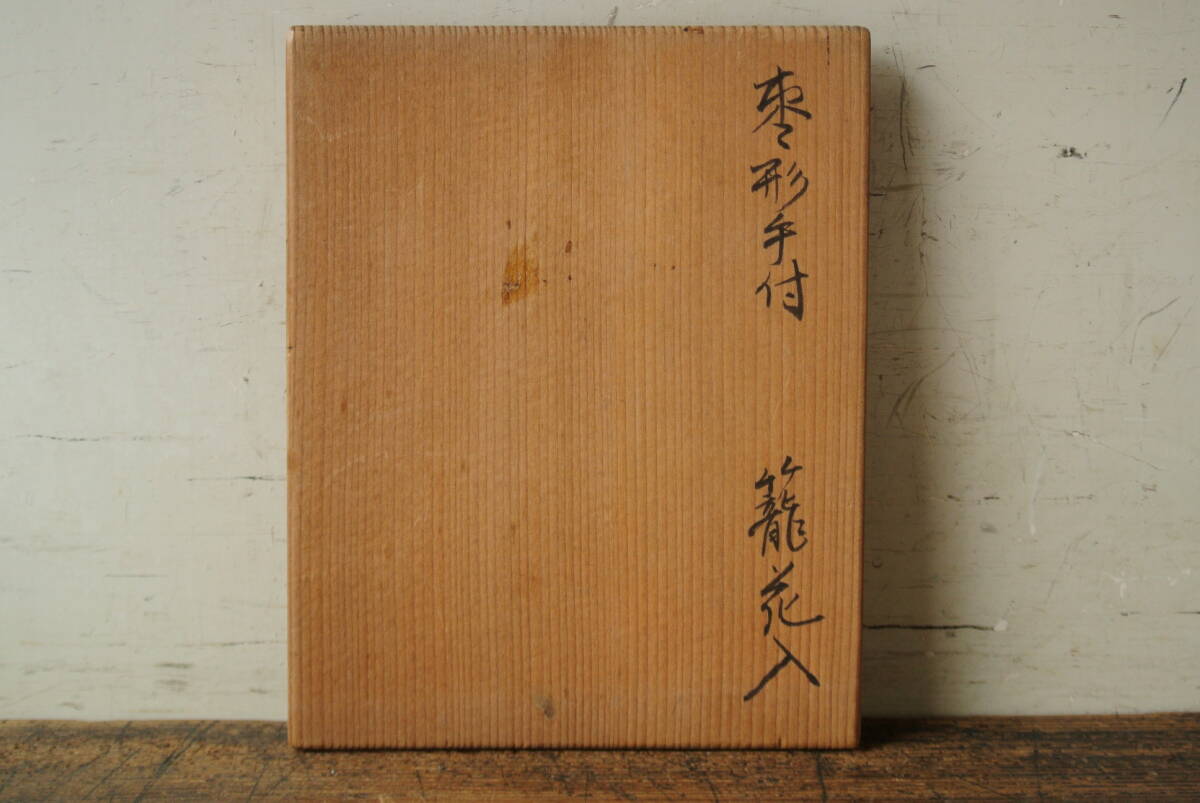 枣形手付　籠花入